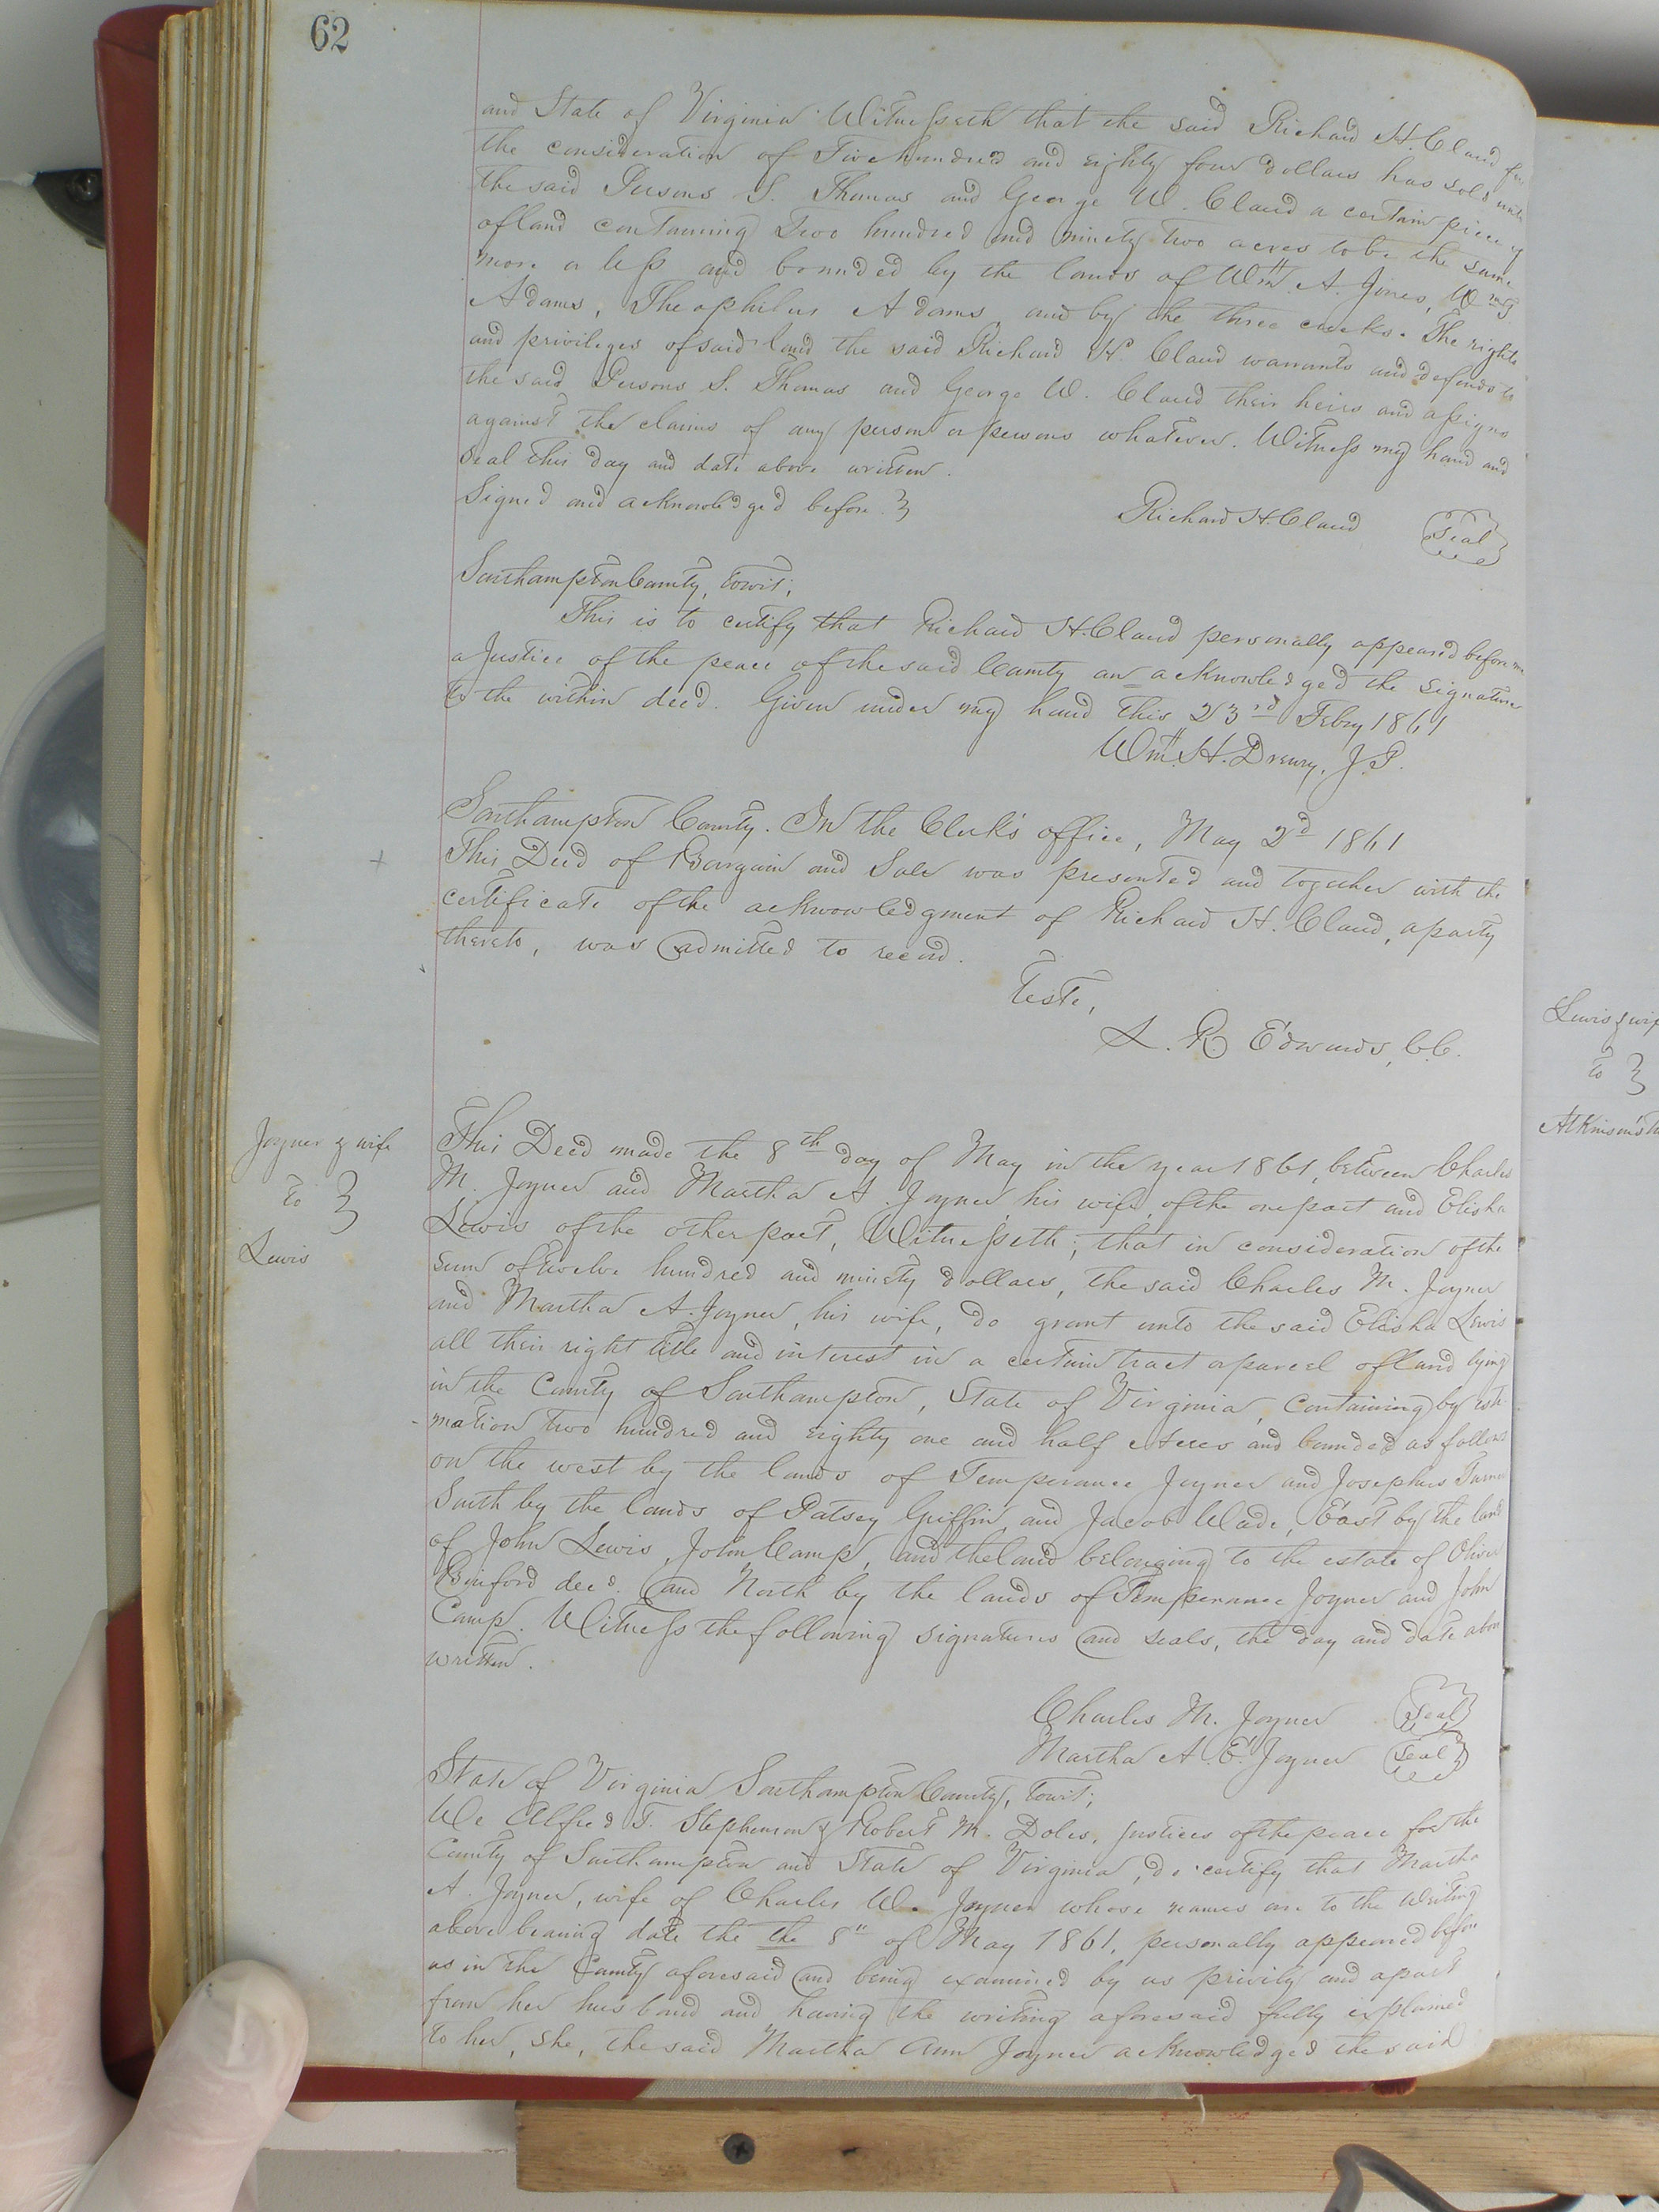 62
and State of Virginia Witnesseth that the said Richard H. Claud for
the consideration of Five hundred and eighty four dollars has sold unto
the said Persons S. Thomas and George W. Claud a certain piece of
of land containing Two hundred and ninety two acres to be the same
more or less and bounded by the lands of Wm. A. Jones,
Adams, Theophilus Adams and by the three creeks. The rights
and privileges of said land the said Richard H. Claud warrants and defends to
the said Persons S. Thomas and George W. Claud their heirs and assigns
against the claims of any person or persons whatever. Witness my hand and
seal this day and date above written.
Signed and acknowledged before
Richard H. Claud Seal
Southampton County, towit;
This is to certify that Richard H. Claud personally appeared before me
a Justice of the peace of the said County an acknowledged the signature
to the within deed. Given under my hand this 23rd Febry 1861
Wm. H. Drewry, J.P.
Southampton County. In the Clerk's office, May 2d 1861
This Deed of Bargain and Sale was presented and together with the
certificate of the acknowledgment of Richard H. Claud, a party
thereto, was admitted to record.
Teste,
L. R. Edwards, C.C.
Joyner & wife
to
Lewis
This Deed made the 8th day of May in the year 1861, between Charles
M. Joyner and Martha A. Joyner, his wife, of the one part and Elisha
Lewis of the other part, Witnesseth; that in consideration of the
sum of twelve hundred and ninety dollars, the said Charles M. Joyner
and Martha A. Joyner, his wife, do grant unto the said Elisha Lewis
all their right title and interest in a certain tract or parcel of land lying
in the County of Southampton, State of Virginia, containing by esti-
mation two hundred and eighty one and half Acres and bounded as follows
on the west by the lands of Temperance Joyner and Josephus Turner
South by the lands of Patsey Griffin and Jacob Wade, East by the land
of John Lewis, John Camp, and the land belonging to the estate of Oliver
Binford decd. and North by the lands of Temperance Joyner and John
Camp. Witness the following signatures and seals, the day and date above
written.
Charles M. Joyner Seal
Martha A. E. Joyner Seal
State of Virginia Southampton County, towit;
We Alfred T. Stephenson & Robert M. Doles, Justices of the peace for the
County of Southampton and State of Virginia, do certify that Martha
A. Joyner, wife of Charles W. Joyner whose names are to the writing
above bearing date the the 8" of May 1861, personally appeared before
us in the County aforesaid and being examined by us privily and apart
from her husband and having the writing aforesaid fully explained
to her, she, the said Martha Ann Joyner acknowledged the said
Lewis & wife
to
Atkinson's